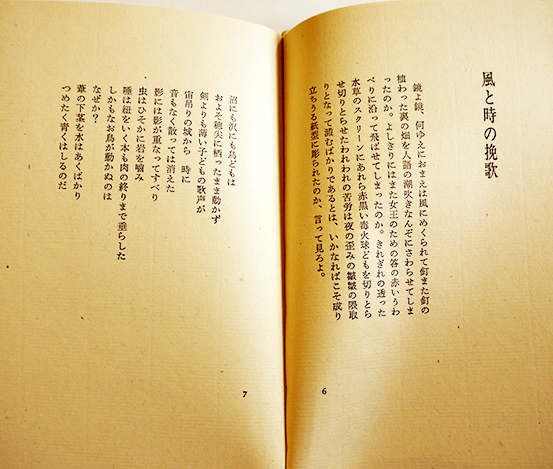 風と時の挽歌
鏡よ鏡、何ゆえにおまえは風にめくられて釘また釘の
植わった裏の畑を人語の潮吹きなんぞにさわらせてしま
ったのか。よしきりにはまた女王のための答の赤いうわ
べりに沿って飛ばせてしまったのか。きれぎれの透った
水草のスクリーンにあれら赤黒い毒火球どもを切りとら
せ切りとらせたわれわれの苦労は夜の歪みの皺皺の隈取
りとなって澱むばかりであるとは、いかなればこそ成り
立ちうる紙型に彫られたのか、言って見ろよ。
6
沼にも沢にも鳥どもは
おおよそ穂尖に栖ったまま動かず
剣よりも薄い子どもの歌声が
宙吊りの城から 時に
音もなく散っては消えた
影には影が重なってすべり
虫はひそかに岩を噛み
唾は紐をいく本も肉の終りまで垂らした
しかもなお鳥が動かぬのは
なぜか?
葦の下茎を水はあくばかり
つめたく青くはしるのだ
7